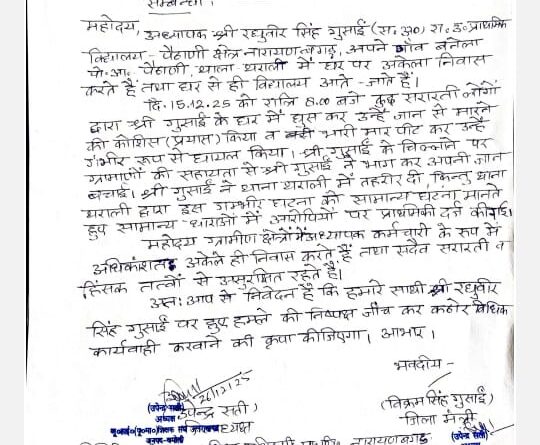 सम्बन्धी ।
महोदय, अध्यापक श्री रघुवीर सिंह गुसाईं (स. अ०) रा. उ. प्राथमिक
विद्यालय - पैठाणी क्षेत्र नारायणबगड़, अपने गाँव बनेला
पो. आ. पैठाणी, थाना थराली में घर पर अकेला निवास
करते हैं तथा घर से ही विद्यालय आते - जाते हैं।
दि. 15.12.25 को रात्रि 8.00 बजे कुछ सरारती लोगों
द्वारा श्री गुसाईं के घर में घुस कर उन्हें जान से मारने
की कोशिस (प्रयास) किया व भारी मार पीट कर उन्हें
गंभीर रूप से घायल किया। श्री गुसाईं के चिल्लाने पर
ग्रामाणों की सहायता से श्री गुसाईं ने भाग कर अपनी जान
बचाई। श्री गुसाईं ने थाना थराली में तहरीर दी, किन्तु थाना
थराली द्वारा इस गम्भीर घटना को सामान्य घटना मानते
हुए सामान्य धाराओं में आरोपियों पर प्राथमिकी दर्ज की गई।
महोदय ग्रामीण क्षेत्रों में अध्यापक कर्मचारी के रूप में
अधिकांशतः अकेले ही निवास करते हैं तथा सदैव सरारती व
हिंसक तत्वों से असुरक्षित रहते है।
अतः आप से निवेदन है कि हमारे साथी श्री रघुवीर
सिंह गुसाईं पर हुए हमले की निष्पक्ष जाँच कर कठोर विधिक
कार्यवाही करवाने की कृपा कीजिएगा। आभार।
भवदीय -
26/12/25
(उपेन्द्र सती)
अध्यक्ष
उपेन्द्र सती
अध्यक्ष
(विक्रम सिंह गुसाईं)
जिला मंत्री
नारायणबगड़